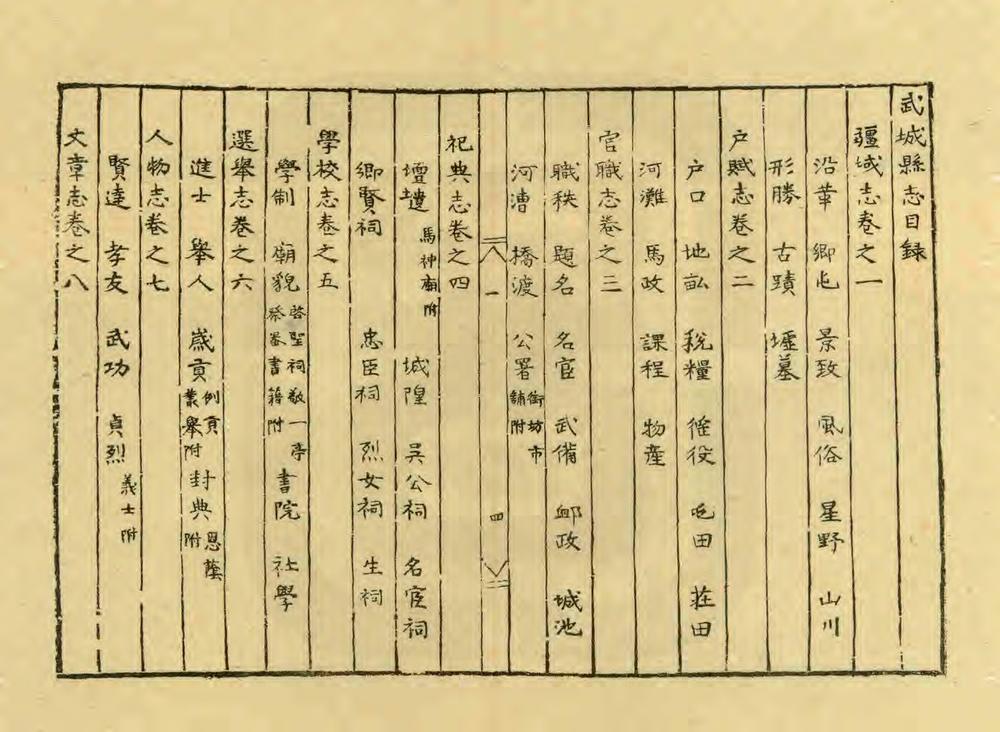 武城縣志目録
疆域志卷之一
沿革 鄉屯 景致 風俗 星野 山川
形勝 古蹟 墟墓
户賦志卷之二
户口 地畝 税糧 徭役 屯田 莊田
河灘 馬政 課程 物産
官職志卷之三
職秩 題名 名宦 武備 郵政 城池
河漕 橋渡 公署 街坊市舖附
一 四
祀典志卷之四
壇壝 馬神廟附 城隍 吴公祠 名宦祠
鄉賢祠 忠臣祠 烈女祠 生祠
學校志卷之五
學制 廟貌 啓聖祠敬一亭祭器書籍附 書院 社學
選舉志卷之六
進士 舉人 歲貢 例貢叢舉附 封典 恩蔭附
人物志卷之七
賢達 孝友 武功 貞烈 義士附
文章志卷之八